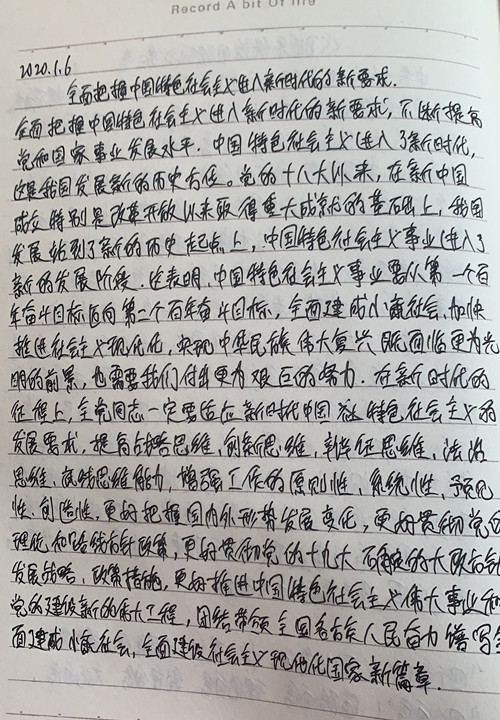 Record A bit Of life
2020.1.6
全面把握中国特色社会主义进入新时代的新要求.
全面把握中国特色社会主义进入新时代的新要求,不断提高
党和国家事业发展水平.中国特色社会主义进入了新时代,
这是我国发展新的历史方位。党的十八大以来,在新中国
成立特别是改革开放以来取得重大成就的基础上,我国
发展站到了新的历史起点上,中国特色社会主义事业进入了
新的发展阶段.这表明,中国特色社会主义事业要从第一个百
年奋斗目标迈向第二个百年奋斗目标,全面建成小康社会、加快
推进社会主义现代化,实现中华民族伟大复兴既面临更为光
明的前景,也需要我们付出更为艰巨的努力.在新时代的
征程上,全党同志一定要适应新时代中国 特色社会主义的
发展要求,提高战略思维、创新思维、辩证思维、法治
思维、底线思维能力,增强工作的原则性、系统性、预见
性、创造性,更好把握国内外形势发展变化,更好贯彻党的
理论和路线方针政策,更好贯彻党的十九大 的大政方针
发展战略、政策措施,更好推进中国特色社会主义伟大事业和
党的建设新的伟大工程,团结带领全国各族人民奋力谱写全
面建成小康社会,全面建设社会主义现代化国家新篇章.